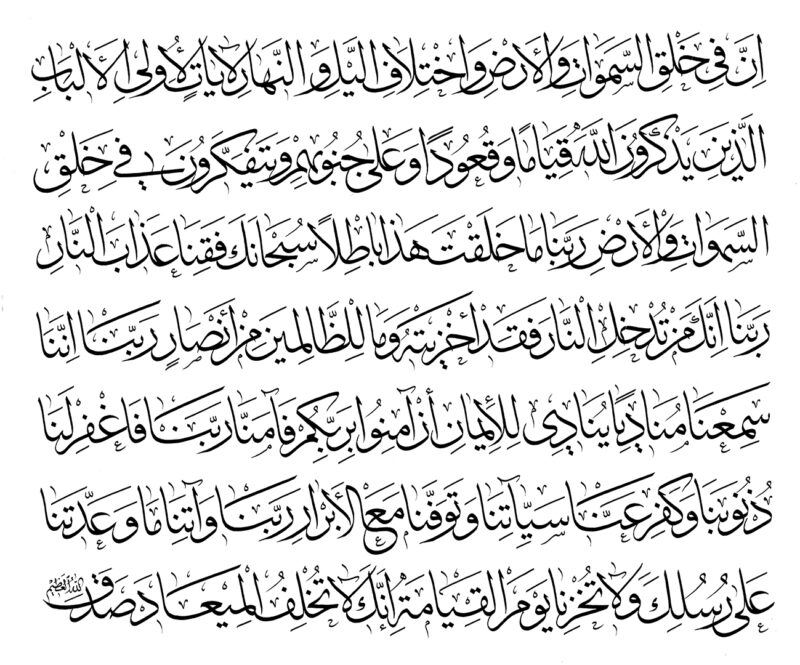 اِنَّ فِي خَلْقِ السَّمَوَاتِ وَالْأَرْضِ وَاخْتِلَافِ الَّيْلِ وَالنَّهَارِ لَآيَاتٍ لِأُولِي الْأَلْبَابِ
الَّذِينَ يَذْكُرُونَ اللهَ قِيَامًا وَقُعُودًا وَعَلَى جُنُوبِهِمْ وَيَتَفَكَّرُونَ فِي خَلْقِ
السَّمَوَاتِ وَالْأَرْضِ رَبَّنَا مَا خَلَقْتَ هَذَا بَاطِلًا سُبْحَانَكَ فَقِنَا عَذَابَ النَّارِ
رَبَّنَا اِنَّكَ مَنْ تُدْخِلِ النَّارَ فَقَدْ أَخْزَيْتَهُ وَمَا لِلظَّالِمِينَ مِنْ أَنْصَارٍ رَبَّنَا اِنَّنَا
سَمِعْنَا مُنَادِيًا يُنَادِي لِلْإِيمَانِ أَنْ آمِنُوا بِرَبِّكُمْ فَآمَنَّا رَبَّنَا فَاغْفِرْ لَنَا
ذُنُوبَنَا وَكَفِّرْ عَنَّا سَيِّآتِنَا وَتَوَفَّنَا مَعَ الْأَبْرَارِ رَبَّنَا وَآتِنَا مَا وَعَدْتَنَا
عَلَى رُسُلِكَ وَلَا تُخْزِنَا يَوْمَ الْقِيَامَةِ اِنَّكَ لَا تُخْلِفُ الْمِيعَادَ صَدَقَ اللهُ الْعَظِيمُ